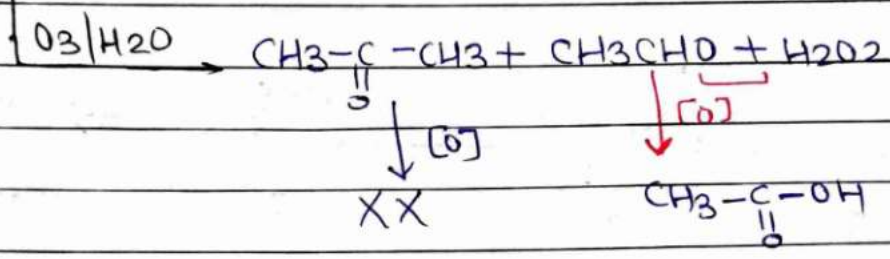 O3|H2O → CH3-C-CH3 + CH3CHO + H2O2
|| 
O
↓ [O] ↓ [O]
XX CH3-C-OH
||
O